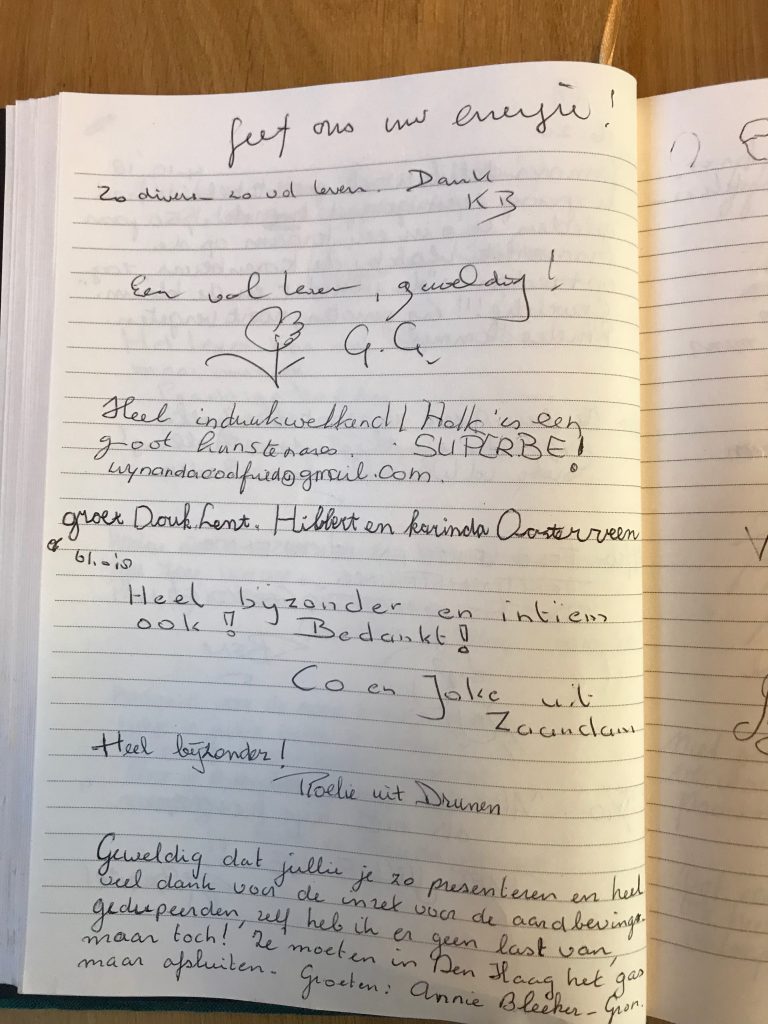 Geef ons uw energie!
Zo divers – zo vol leven. Dank
KB
Een vol leven, geweldig!
G.G.
Heel indrukwekkend! Halk is een
groot kunstenares. SUPERBE!
@gmail.com.
groet Douk Lent. Hibbert en karinda Oosterveen
Heel bijzonder en intiem
ook! Bedankt!
Co en Joke uit
Zaandam
Heel bijzonder!
Roelie uit Drunen
Geweldig dat jullie je zo presenteren en heel
veel dank voor de inzet voor de aardbevings-
gedupeerden, zelf heb ik er geen last van,
maar toch! Ze moeten in Den Haag het gas
maar afsluiten. Groeten: Annie Bleeker – Gron.